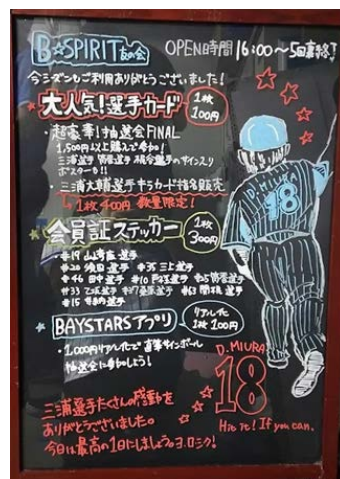 B☆SPIRIT友の会 OPEN時間 16:00〜5回裏終了
今シーズンもご利用ありがとうございました!
大人気!選手カード 1枚100円
・超豪華!抽選会FINAL
1,500円以上購入で参加!
三浦選手 筒香選手 梶谷選手のサイン入り
ポスターetc!!
・三浦大輔選手キラカード指名販売
→1枚400円 数量限定!
会員証ステッカー 1枚300円
#19 山﨑康 選手
#20 須田 選手 #35 三上 選手
#46 田中 選手 #10 戸柱選手 #25筒香選手
#33 乙坂選手 #37桑原選手 #63 関根 選手
#15 選手
BAYSTARSアプリ リアル化 1枚100円
・1,000円リアル化で直筆サインボール
抽選会に参加しよう!
D.MIURA
18
D.MIURA
18
Hit it! If you can.
三浦選手たくさんの感動を
ありがとうございました。
今日は最高の1日にしましょう。ヨ・ロ・シ・ク!